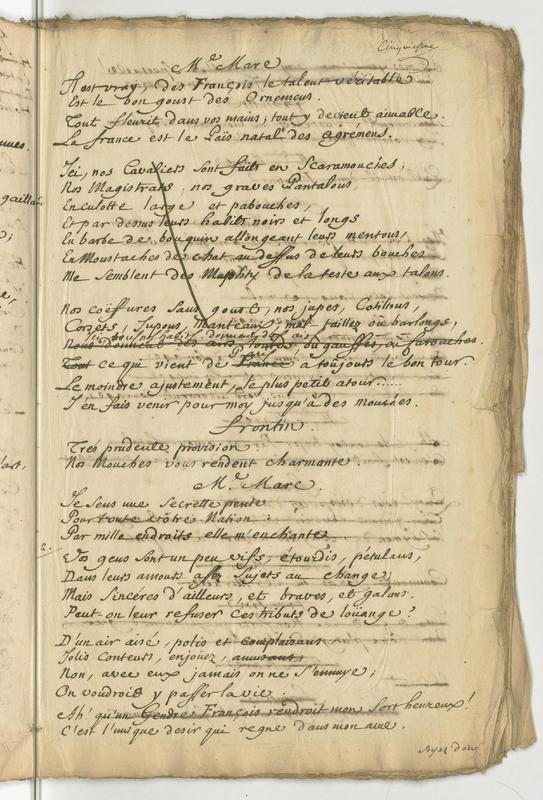 Cinquième
Me Marc
Il est vray, des François le talent véritable
Est le bon goust des Ornemens.
Tout fleurit dans vos mains; tout y devient aimable.
La france est le Païs natal des agrémens.
Ici, nos Cavaliers sont faits en Scaramouches;
Nos Magistrats, nos graves Pantalons,
En culotte large et pabouches,
Et par dessus leurs habits noirs et longs
En barbe de bouquin allongeant leurs mentons,
En Moustaches de chat au dessus de leurs bouches
Me semblent des de la teste aux talons.
Nos coëffures sans goust, nos jupes, Cotillons,
Corsets, Jupons, Manteaux, mal taillez où barlongs,
Ici tous nos habits donnent des airs
Nous donnent des airs, lourds ou gauffes, où farouches.
Paris
Tout ce qui vient de France a toujours le bon tour.
Le moindre ajustement, le plus petit atour.....
J'en fais venir pour moy jusqu'à des mouches.
Frontin.
Tres prudente provision
Nos Mouches vous rendent charmante.
Me Marc.
Je sens une secrette pente
Pour toute vôtre Nation:
Par mille endroits elle m'enchante.
2.
Vos gens sont un peu vifs, étourdis, pétulans,
Dans leurs amours assez sujets au change,
Mais sincères d'ailleurs, et braves, et galans.
Peut on leur refuser ces tributs de loüange?
D'un air aisé, polis et complaisans
Jolis conteurs, enjoüez, amusans,
Non, avec eux jamais on ne s'ennuye;
On voudroit y passer la vie.
Ah! qu'un Gendre François rendroit mon sort heureux!
C'est l'unique desir qui regne dans mon ame.
Soyez donc